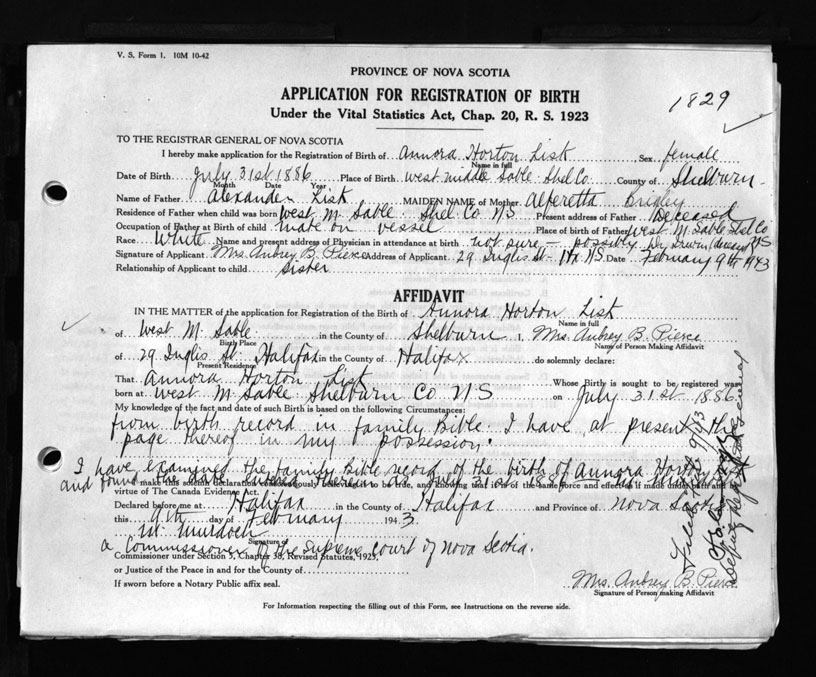 V. S. Form 1. 10M 10-42
PROVINCE OF NOVA SCOTIA
APPLICATION FOR REGISTRATION OF BIRTH
1829
Under the Vital Statistics Act, Chap. 20, R. S. 1923
TO THE REGISTRAR GENERAL OF NOVA SCOTIA
I hereby make application for the Registration of Birth of Annora Horton Lisk, Sex female
Name in full
Date of Birth July 31st 1886 Place of Birth West middle Sable Shel Co. County of Shelburn
Month Date Year
Name of Father Alexander Lisk MAIDEN NAME of Mother Alferetta
Residence of Father when child was born West M. Sable Shel Co N/S Present address of Father Deceased
Occupation of Father at Birth of child mate on vessel Place of birth of Father West M. Sable Shel Co
Race White Name and present address of Physician in attendance at birth not sure – possibly Dr N/S
Signature of Applicant Mrs. Aubrey B. Pierce Address of Applicant 29 Inglis St. Hx N.S. Date February 9th 1943
Relationship of Applicant to child sister
AFFIDAVIT
IN THE MATTER of the application for Registration of the Birth of Annora Horton Lisk
Name in full
of West M. Sable in the County of Shelburn I, Mrs. Aubrey B. Pierce
Birth Place Name of Person Making Affidavit
of 29 Inglis St. Halifax in the County of Halifax do solemnly declare:
Present Residence
That Annora Horton Lisk Whose Birth is sought to be registered was
born at West M Sable Shelburn Co N/S on July 31st 1886
My knowledge of the fact and date of such Birth is based on the following Circumstances:
from birth record in family Bible. I have at present the
page thereof in my possession.
I have examined the family Bible record of the birth of Annora Horton
and found the date entered therein as July 31st 1886
and I make this solemn declaration conscientiously believing it to be true, and knowing that it is of the same force and effect as if made under oath and by
virtue of The Canada Evidence Act.
Declared before me at Halifax in the County of Halifax and Province of Nova Scotia
this 9th day of February 1943.
Murdoch
Signature of
a Commissioner of the Supreme Court of Nova Scotia.
Commissioner under Section 3, Chapter 38, Revised Statutes, 1923,
or Justice of the Peace in and for the County of
If sworn before a Notary Public affix seal.
Mrs. Aubrey B. Pierce
Signature of Person making Affidavit
For Information respecting the filling out of this Form, see Instructions on the reverse side.